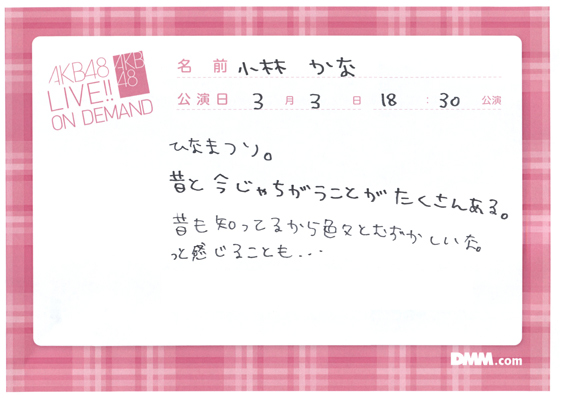 AKB48
LIVE!!
ON DEMAND
AKB
48
名 前 小林 かな
公演日 3 月 3 日 18 : 30 公演
ひなまつり。
昔と今じゃちがうことがたくさんある。
昔も知ってるから色々とむずかしいな。
っと感じることも...
DMM.com